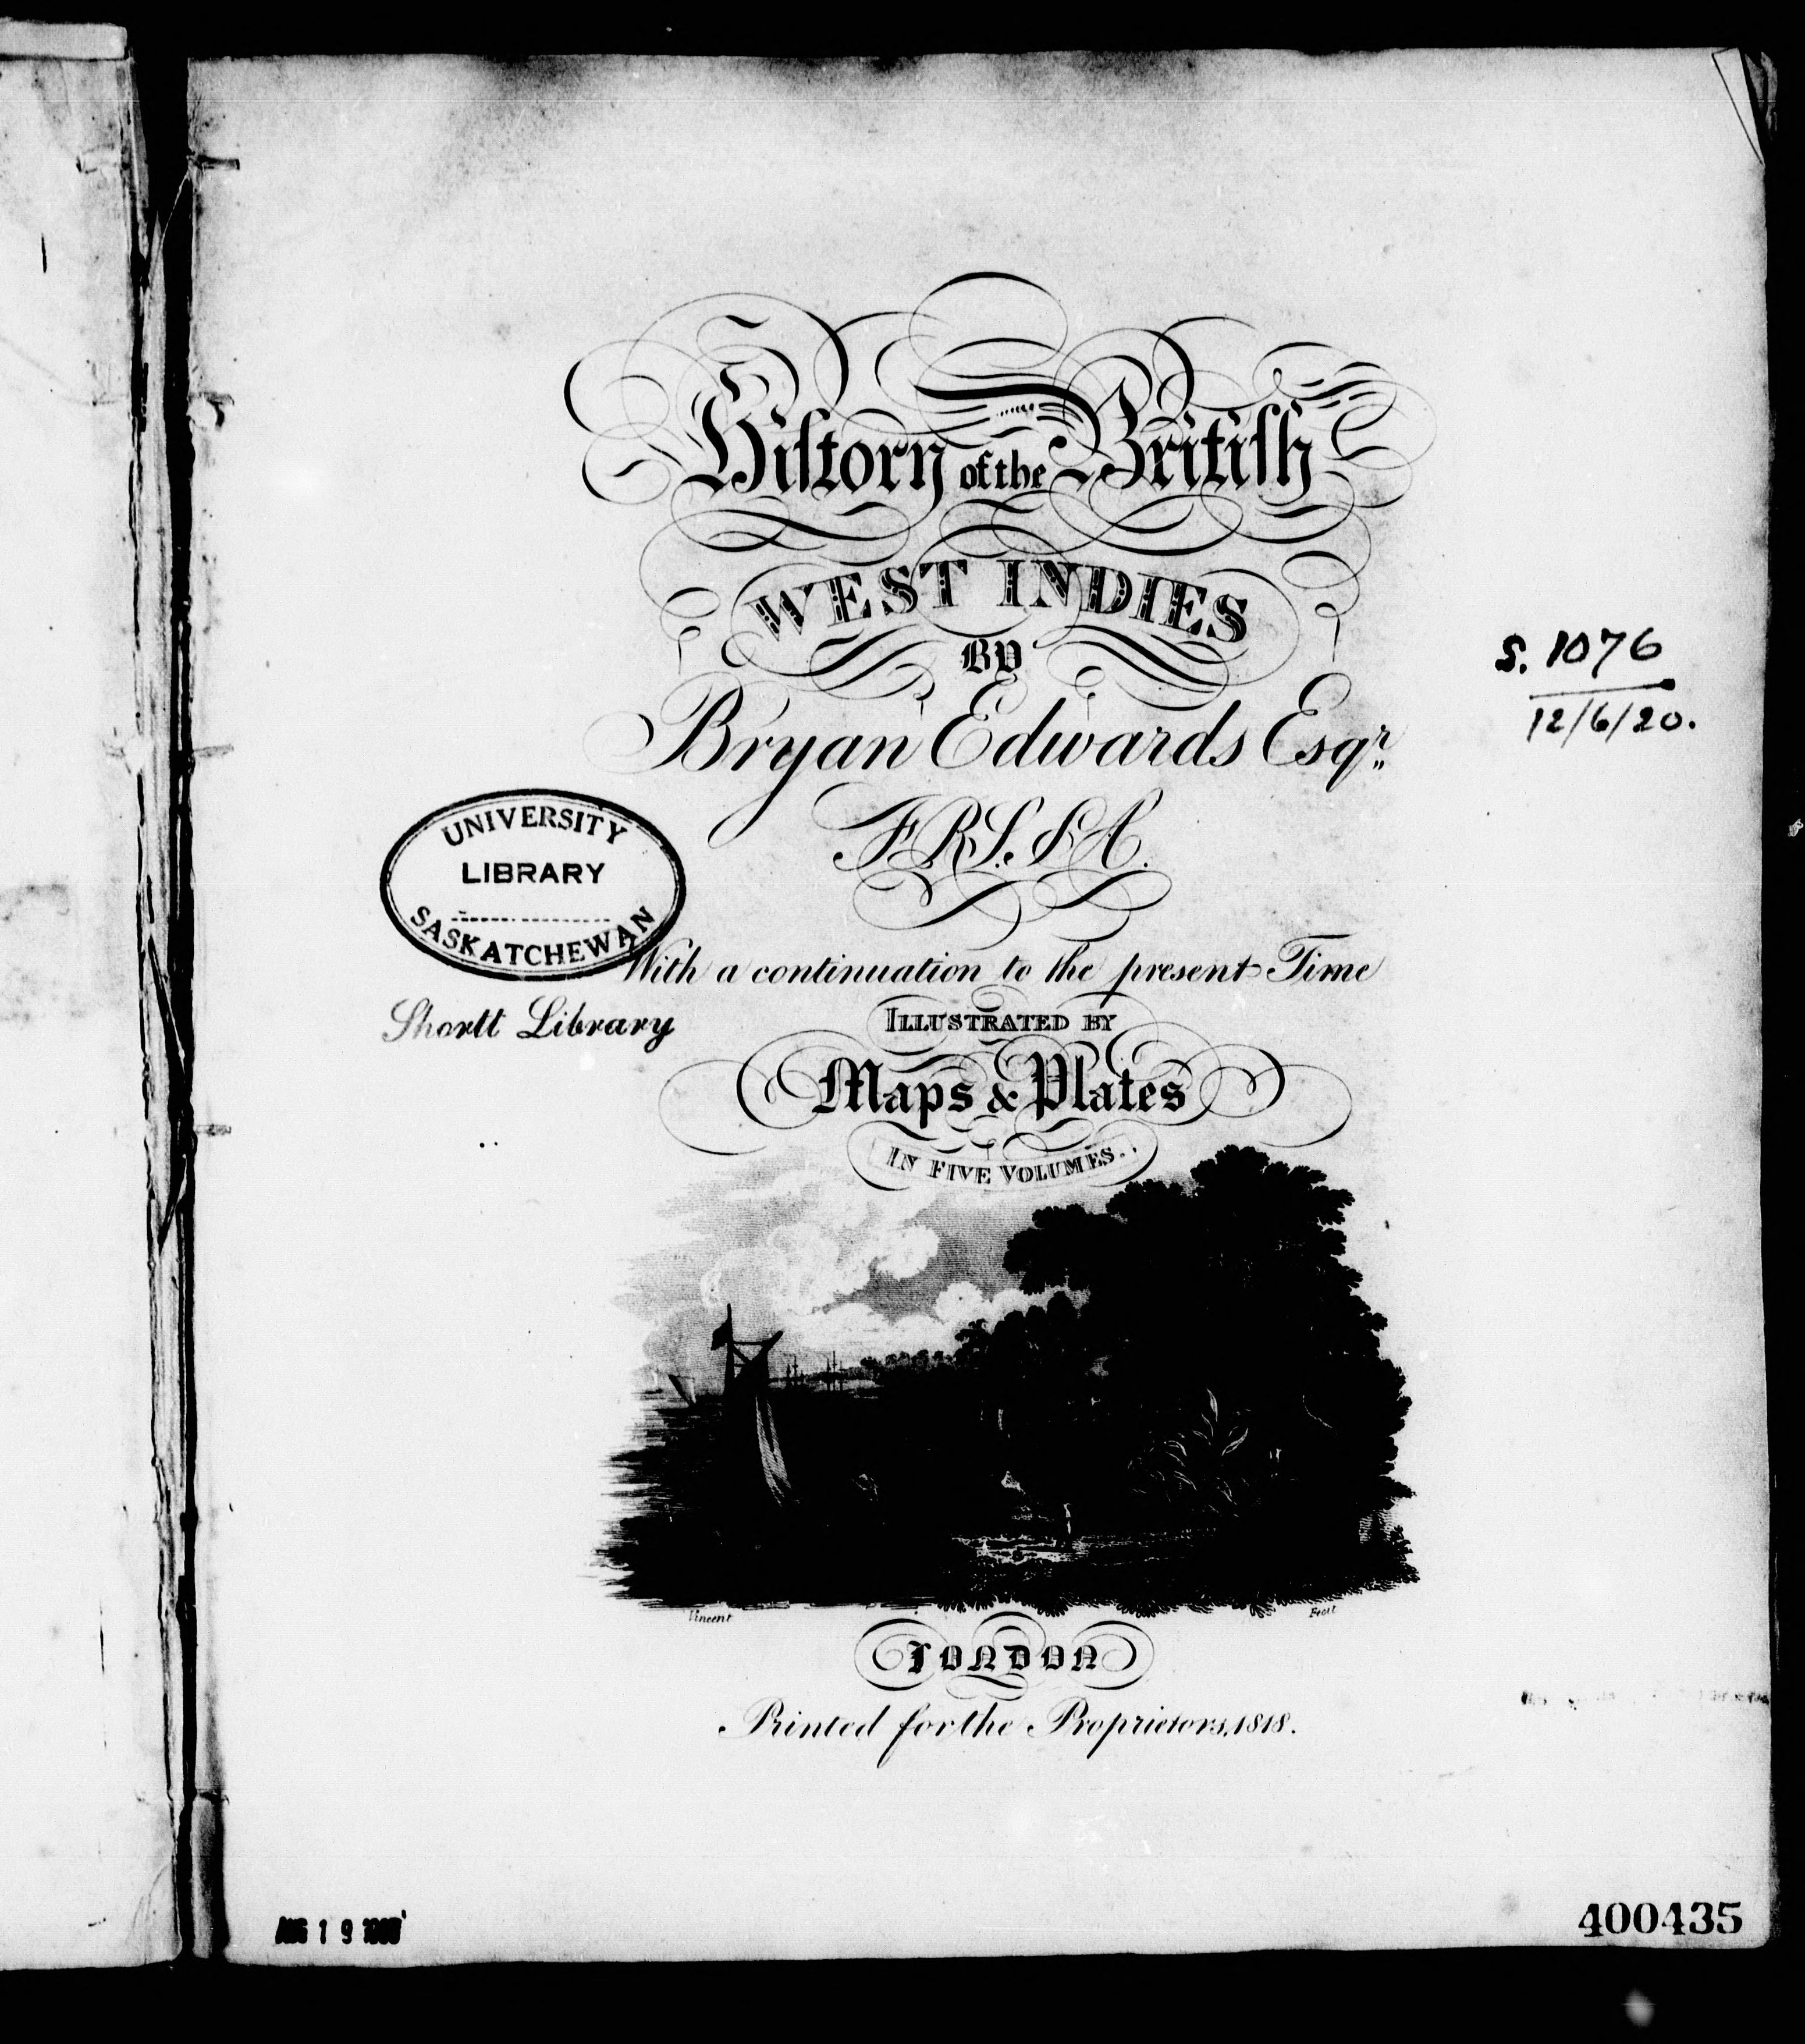 Hiſtory of the Britiſh
WEST INDIES
BY
Bryan Edwards Esqr.
F.R.S. & A.
With a continuation to the present Time
ILLUSTRATED BY
Maps & Plates
IN FIVE VOLUMES.
Vincent
LONDON
Printed for the Proprietors, 1818.
S. 1076
12/6/20.
UNIVERSITY
LIBRARY
SASKATCHEWAN
Shortt Library
AUG 19
400435